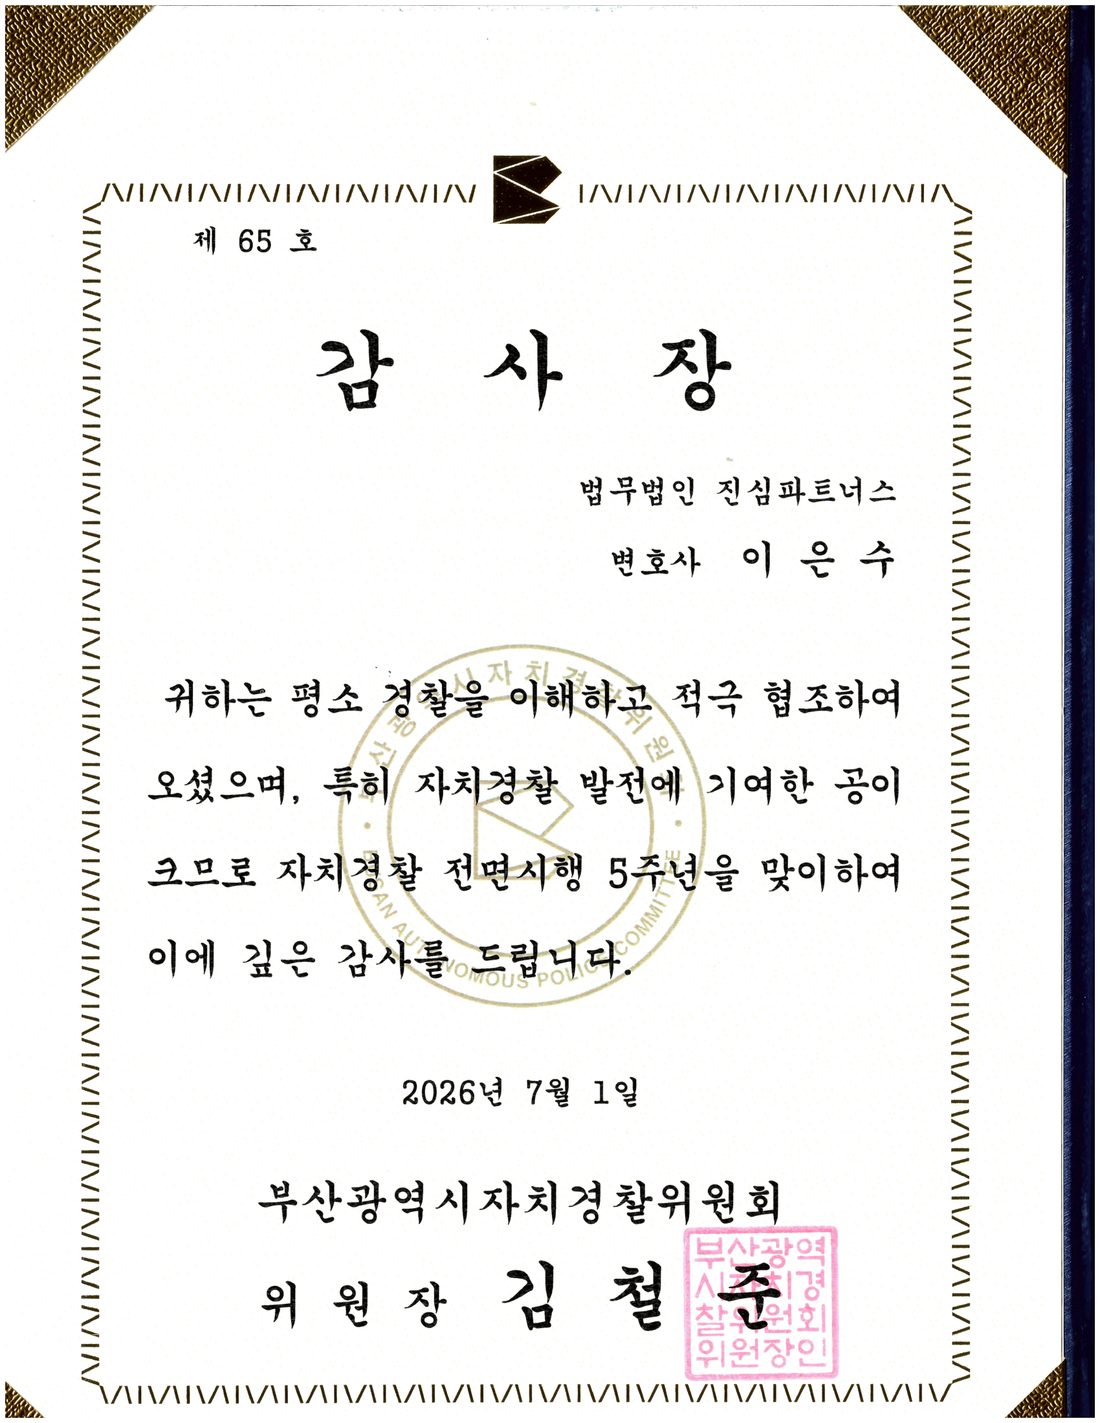 제 65 호
감 사 장
법무법인 진심파트너스
변호사 이 은 수
귀하는 평소 경찰을 이해하고 적극 협조하여
오셨으며, 특히 자치경찰 발전에 기여한 공이
크므로 자치경찰 전면시행 5주년을 맞이하여
이에 깊은 감사를 드립니다.
부산광역시자치경찰위원회
BUSAN AUTONOMOUS POLICE COMMITTEE
2026년 7월 1일
부산광역시자치경찰위원회
위 원 장 김 철 준
부산광역
시자치경
찰위원회
위원장인